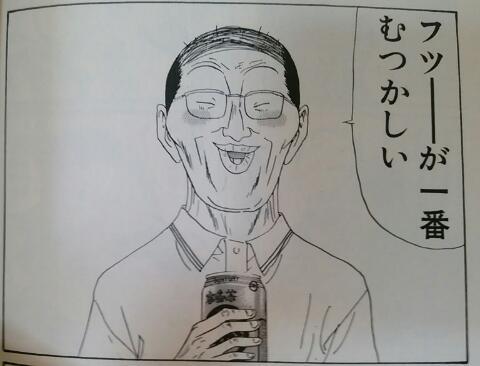 フツ――が一番
むつかしい